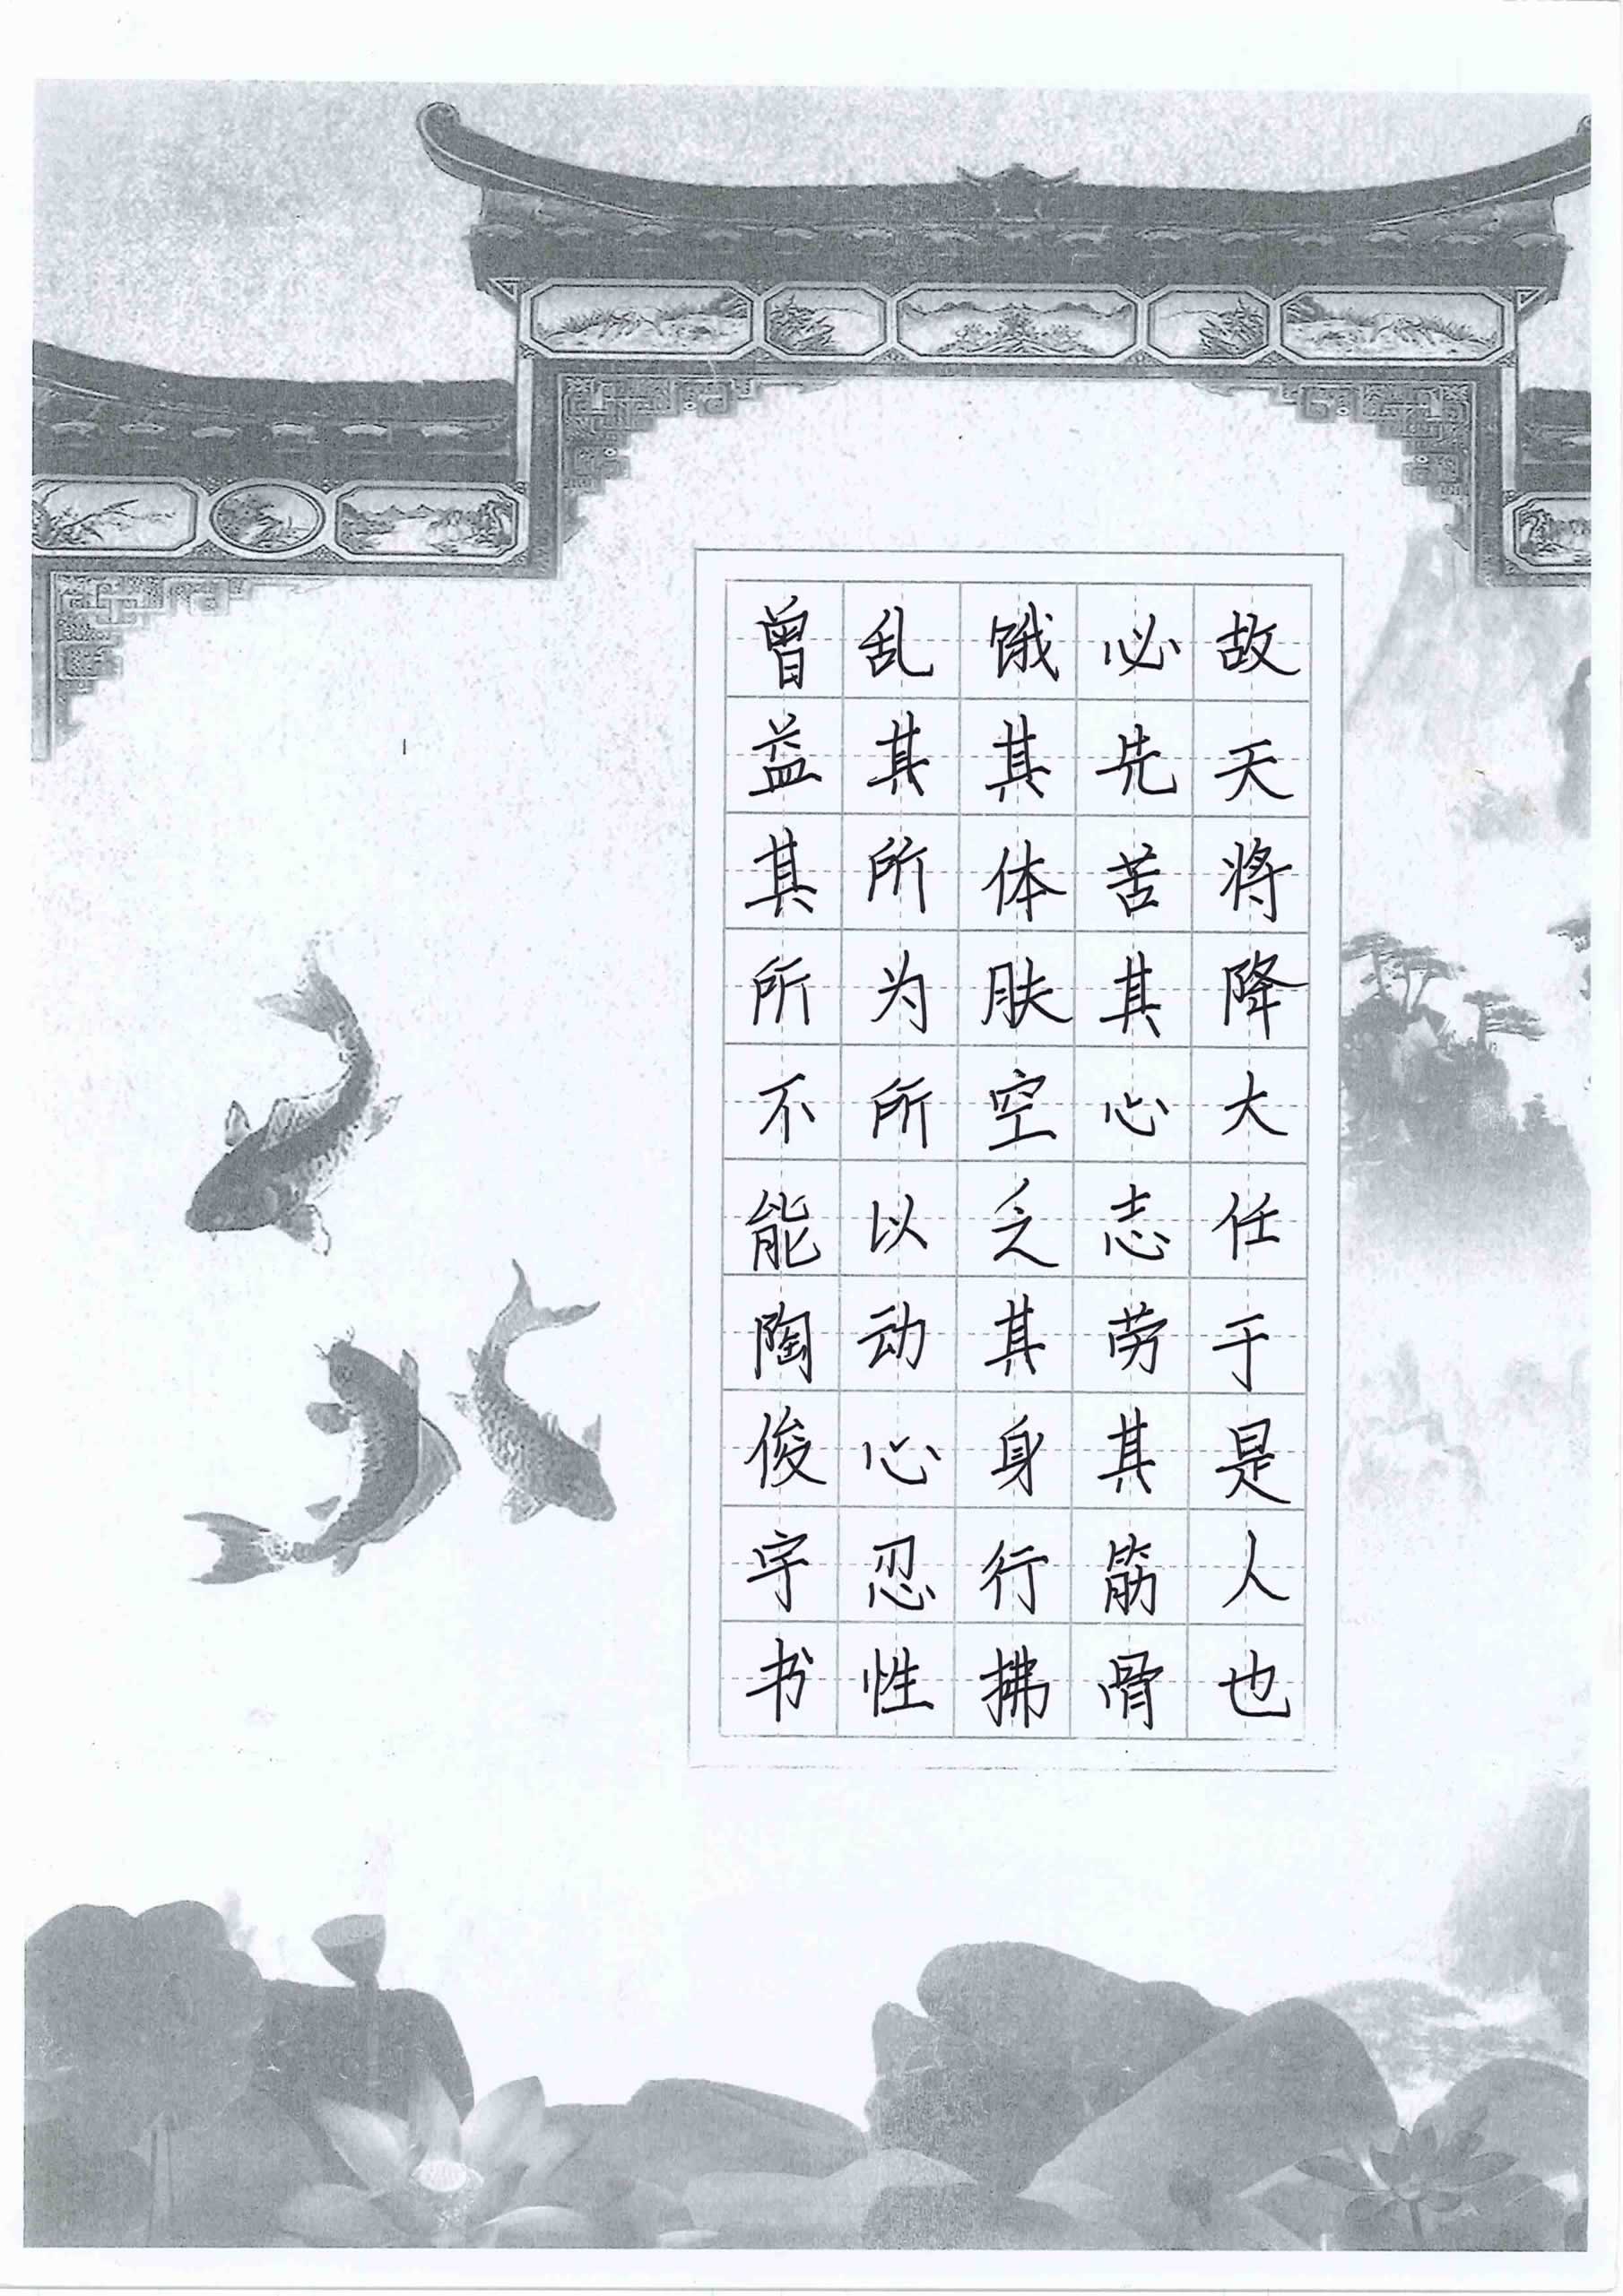 故天将降大任于是人也
必先苦其心志劳其筋骨
饿其体肤空乏其身行拂
乱其所为所以动心忍性
曾益其所不能陶俊宇书